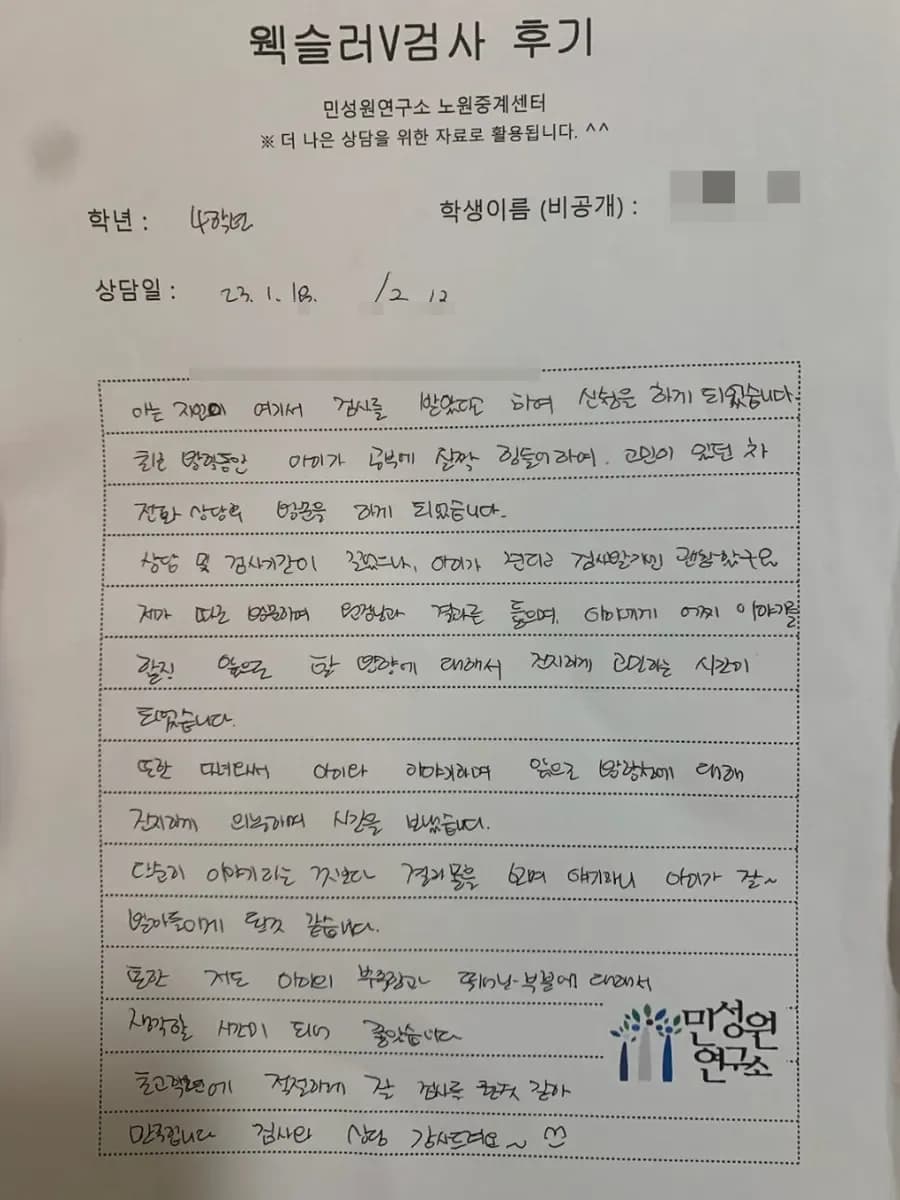 웩슬러V검사 후기
민성원연구소 노원중계센터
※ 더 나은 상담을 위한 자료로 활용됩니다. ^^
학년 : 4학년
학생이름 (비공개) :
상담일 : 23. 1. 18. /2 12
아는 지인이 여기서 검사를 받았다고 하여 신청은 하게 되었습니다.
최근 방학동안 아이가 공부에 살짝 힘들어하여. 고민이 있던 차
전화 상담후 방문을 하게 되었습니다.
상담 및 검사기간이 길었으나, 아이가 견디고 검사받기엔 괜찮았구요
제가 따로 방문하여 원장님과 결과를 들으며, 아이에게 어찌 이야기를
할진 앞으로 할 방향에 대해서 진지하게 고민하는 시간이
되었습니다.
또한 다녀와서 아이와 이야기하며 앞으로 방향성에 대해
진지하게 의논하며 시간을 보냈습니다.
단순히 이야기하는 것보다 결과물을 보며 얘기하니 아이가 잘~
받아들이게 된것 같습니다.
또한 저도 아이의 부족함과 뛰어난 부분에 대해서
생각할 시간이 되어 좋았습니다
초고학년에 적절하게 잘 검사를 한것 같아
만족합니다 검사와 상담 감사드려요~
민성원
연구소